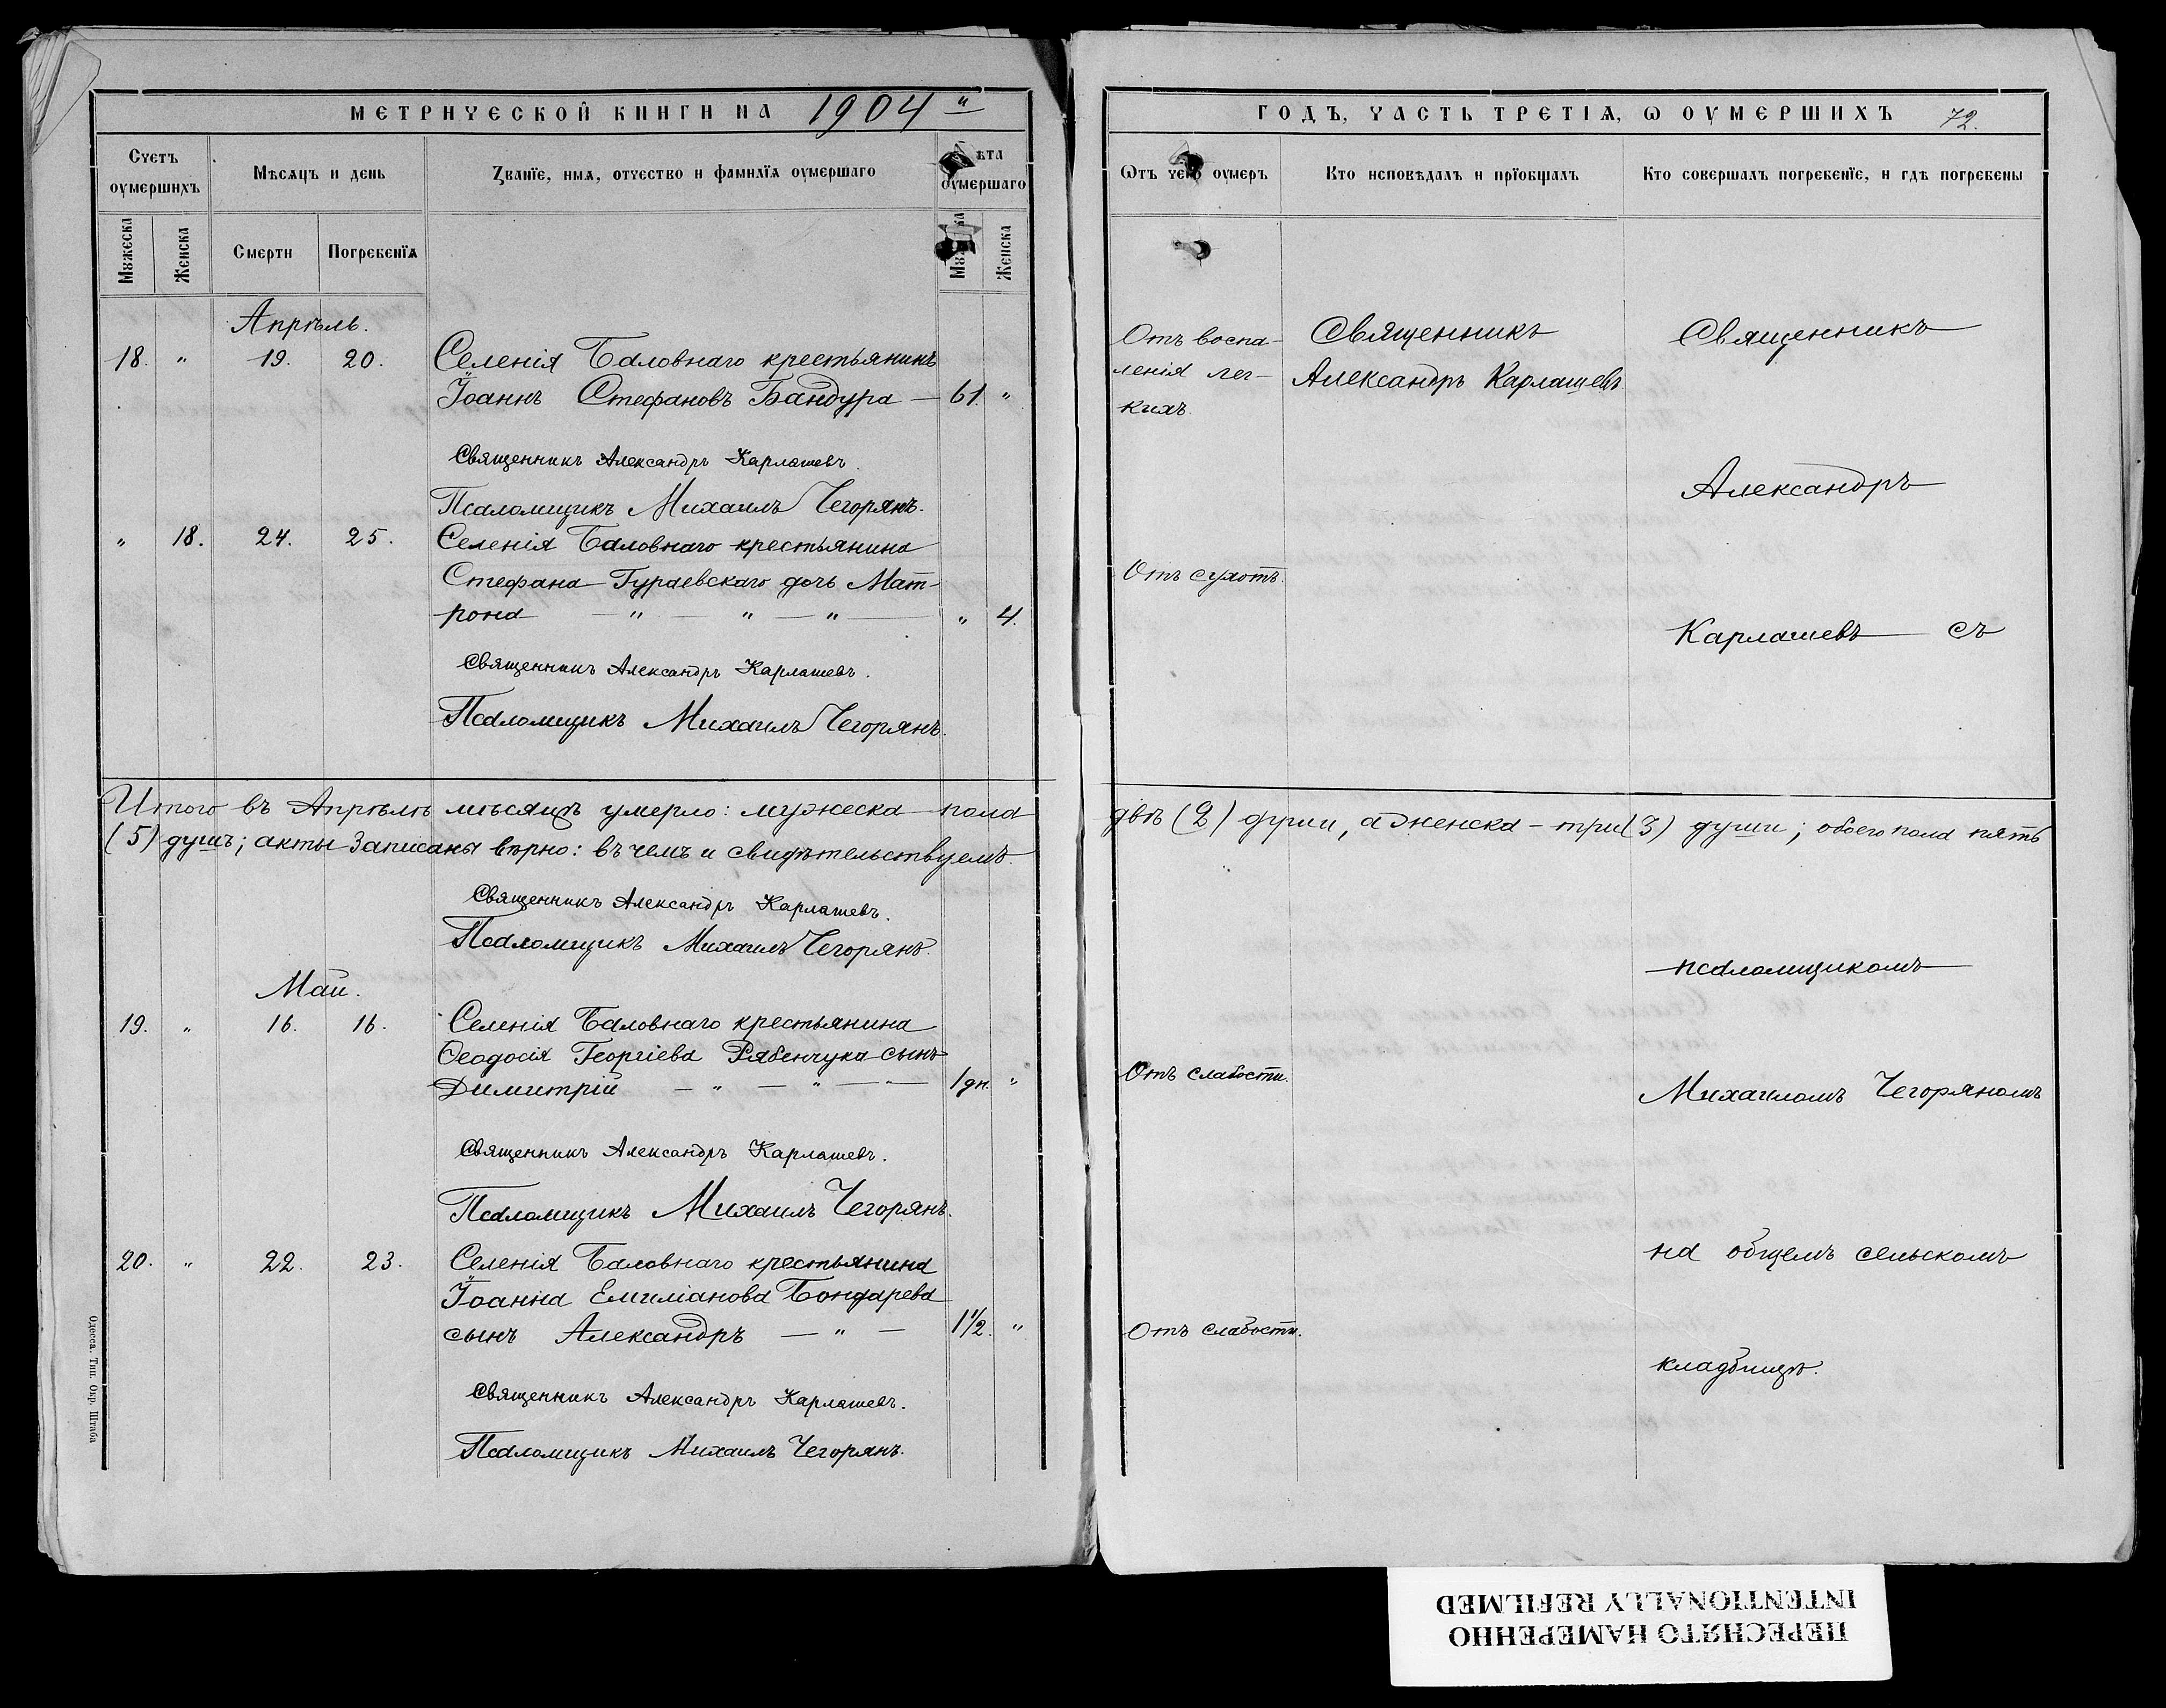 МЕТРИЧЕСКОЙ КНИГИ НА 1904 й
Счетъ оумершихъ
Мѣсяцъ и день
Званїе, имя, отчество и фамилїя оумершаго
ѣта оумершаго
Мꙋжеска
Женска
Смерти
Погребенїя
Женска
Апрѣль.
18. " 19. 20. Селенія Баловнаго крестьянинъ
Іоаннъ Стефановъ Бандура — 61. "
Священникъ Александръ Карлашевъ.
Псаломщикъ Михаилъ Чегорянъ.
" 18. 24. 25. Селенія Баловнаго крестьянина
Стефана Гураевскаго дочь Мат-
рона — " — " — " — " 4.
Священникъ Александръ Карлашевъ.
Псаломщикъ Михаилъ Чегорянъ.
Итого въ Апрѣлѣ мѣсяцѣ умерло: мужеска пола
(5) душъ; акты записаны вѣрно: въ чемъ и свидѣтельствуемъ.
Священникъ Александръ Карлашевъ.
Псаломщикъ Михаилъ Чегорянъ.
Май.
19. " 16. 16. Селенія Баловнаго крестьянина
Ѳеодосія Георгіева Рябенчука сынъ
Димитрій — " — " — " — 1 дн. "
Священникъ Александръ Карлашевъ.
Псаломщикъ Михаилъ Чегорянъ.
20. " 22. 23. Селенія Баловнаго крестьянина
Іоанна Емиліанова Бондарева
сынъ Александръ — " — 1 1/2. "
Священникъ Александръ Карлашевъ.
Псаломщикъ Михаилъ Чегорянъ.
Одесса. Тип. Окр. Штаба
ГОДЪ, ЧАСТЬ ТРЕТІЯ, Ѡ ОУМЕРШИХЪ 72.
Ѿтъ чего оумеръ
Кто исповѣдалъ и прїобщалъ
Кто совершалъ погребенїе, и гдѣ погребены
Отъ воспа-
ленія лег-
кихъ.
Священникъ
Александръ Карлашевъ
Священникъ
Александръ
Отъ сухотъ.
Карлашевъ съ
двѣ (2) души, а женска - три (3) души; обоего пола пять
псаломщикомъ
Отъ слабости.
Михаиломъ Чегоряномъ
на общемъ сельскомъ
Отъ слабости.
кладбищѣ.
ПЕРЕСНЯТО НАМЕРЕННО
INTENTIONALLY REFILMED